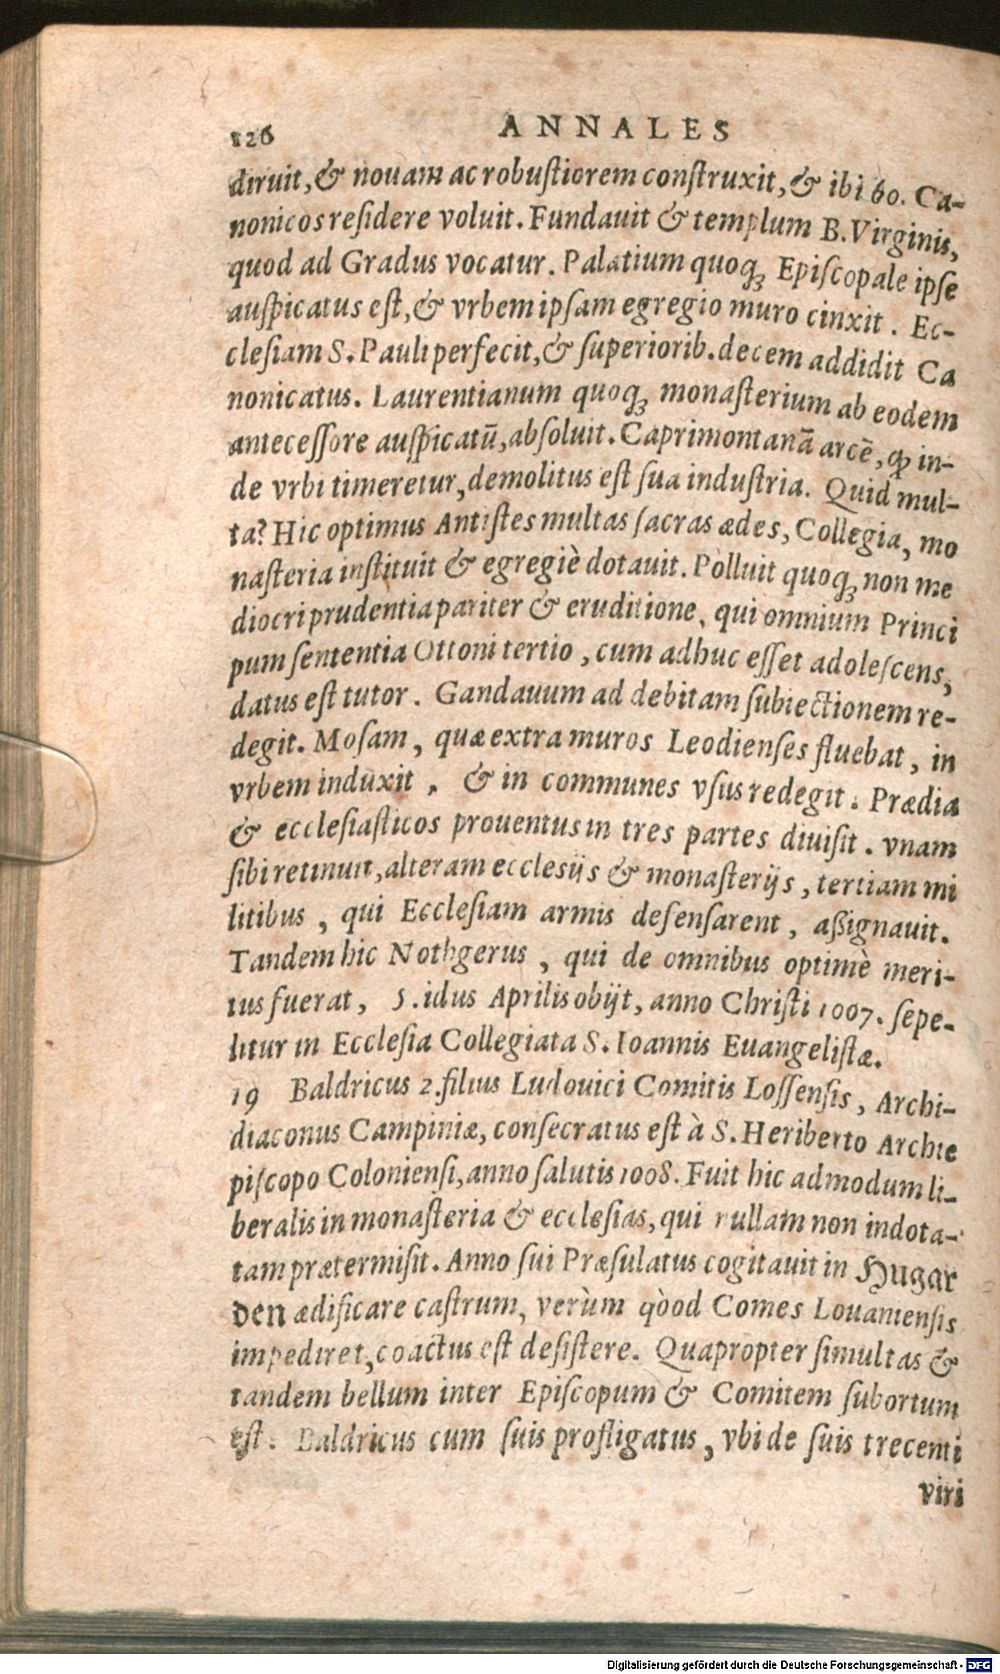 126 ANNALES
diruit, & nouam ac robustiorem construxit, & ibi 60. Ca-
nonicos residere voluit. Fundauit & templum B. Virginis,
quod ad Gradus vocatur. Palatium quoqꝫ Episcopale ipse
auspicatus est, & vrbem ipsam egregio muro cinxit. Ec-
clesiam S. Pauli perfecit, & superiorib. decem addidit Ca
nonicatus. Laurentianum quoqꝫ monasterium ab eodem
antecessore auspicatū, absoluit. Caprimontanā arcē, qꝫ in-
de vrbi timeretur, demolitus est sua industria. Quid mul-
ta? Hic optimus Antistes multas sacras ædes, Collegia, mo
nasteria instituit & egregiè dotauit. Polluit quoqꝫ non me
diocri prudentia pariter & eruditione, qui omnium Princi
pum sententia Ottoni tertio, cum adhuc esset adolescens,
datus est tutor. Gandauum ad debitam subiectionem re-
degit. Mosam, quæ extra muros Leodienses fluebat, in
vrbem induxit, & in communes vsus redegit. Prædia
& ecclesiasticos prouentus in tres partes diuisit. vnam
sibi retinuit, alteram ecclesijs & monasterijs, tertiam mi
litibus, qui Ecclesiam armis defensarent, aßignauit.
Tandem hic Nothgerus, qui de omnibus optimè meri-
tus fuerat, 5. idus Aprilis obijt, anno Christi 1007. sepe-
litur in Ecclesia Collegiata S. Ioannis Euangelistæ.
19 Baldricus 2. filius Ludouici Comitis Lossensis, Archi-
diaconus Campiniæ, consecratus est à S. Heriberto Archie
piscopo Coloniensi, anno salutis 1008. Fuit hic admodum li-
beralis in monasteria & ecclesias, qui nullam non indota-
tam prætermisit. Anno sui Præsulatus cogitauit in Hugar
den ædificare castrum, verùm qòod Comes Louaniensis
impediret, coactus est desistere. Quapropter simultas &
tandem bellum inter Episcopum & Comitem subortum
est. Baldricus cum suis profligatus, vbi de suis trecenti
viri
Digitalisierung gefördert durch die Deutsche Forschungsgemeinschaft - DFG